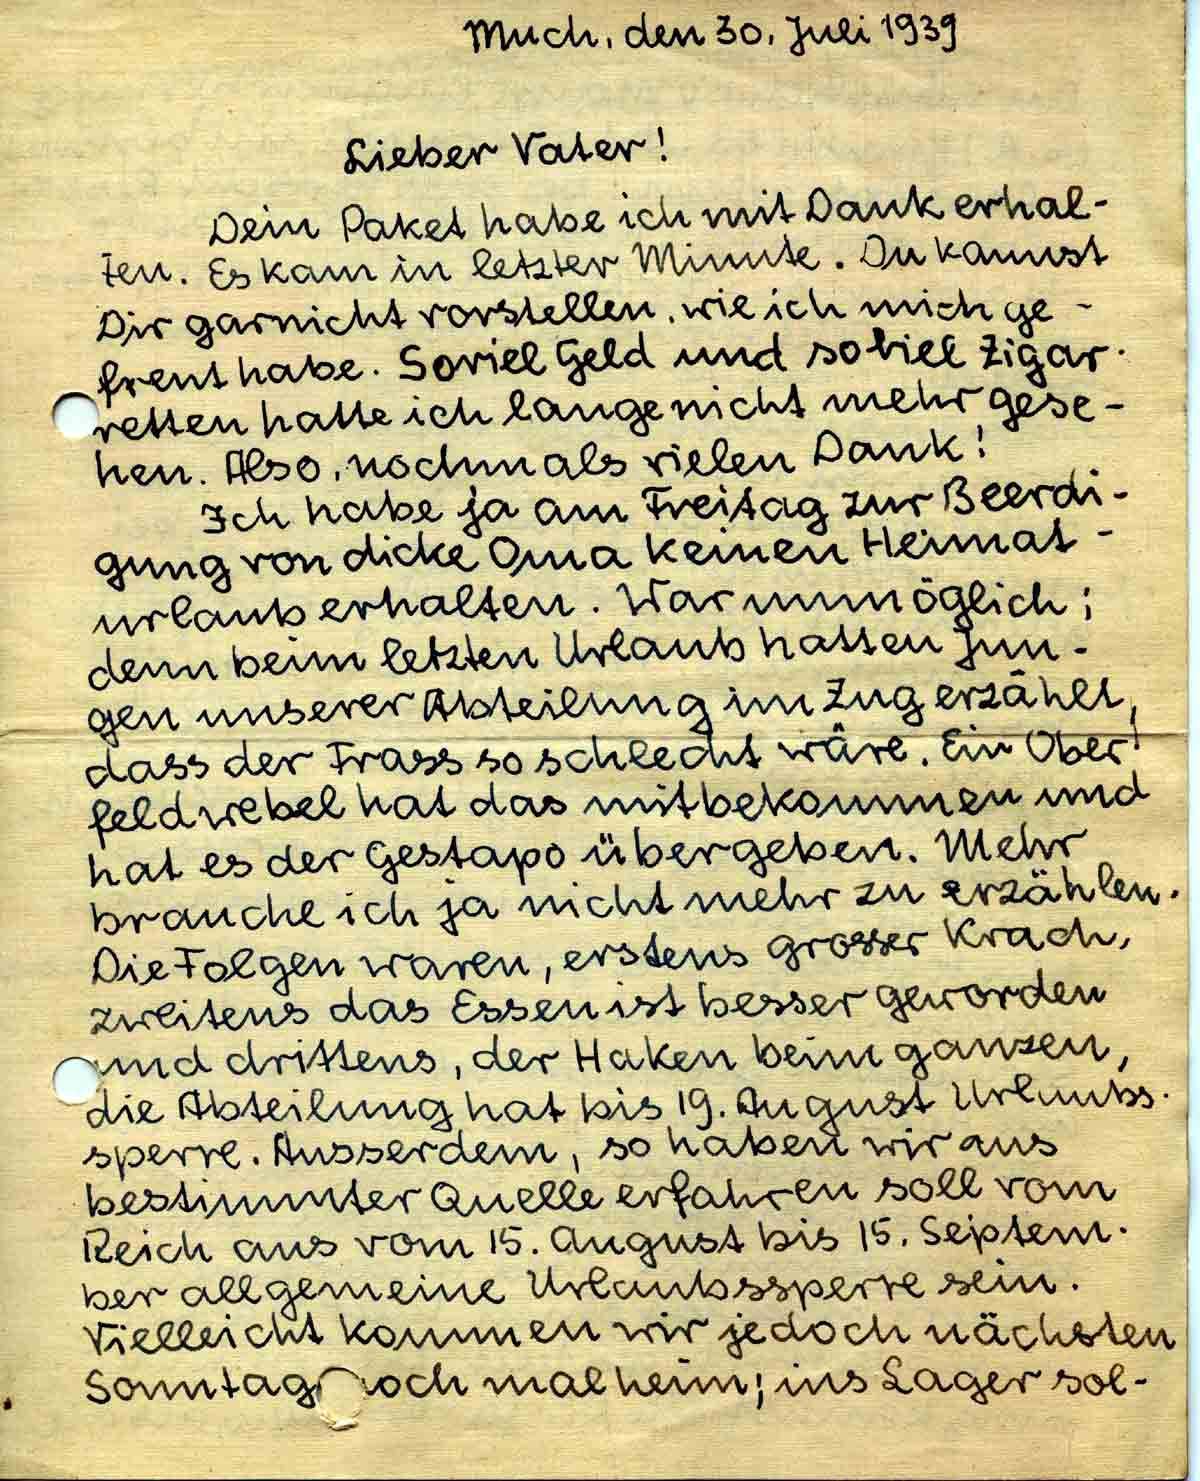 Much, den 30. Juli 1939
Lieber Vater!
Dein Paket habe ich mit Dank erhal-
ten. Es kam in letzter Minute. Du kannst
Dir garnicht vorstellen, wie ich mich ge-
freut habe. Soviel Geld und soviel Zigar-
retten hatte ich lange nicht mehr gese-
hen. Also, nochmals vielen Dank!
Ich habe ja am Freitag zur Beerdi-
gung von dicke Oma keinen Heimat-
urlaub erhalten. War unmöglich;
denn beim letzten Urlaub hatten Jun-
gen unserer Abteilung im Zug erzählt,
dass der Frass so schlecht wäre. Ein Ober-
feldwebel hat das mitbekommen und
hat es der Gestapo übergeben. Mehr
brauche ich ja nicht mehr zu erzählen.
Die Folgen waren, erstens grosser Krach,
zweitens das Essen ist besser geworden
und drittens, der Haken beim ganzen,
die Abteilung hat bis 19. August Urlaubs-
sperre. Ausserdem, so haben wir aus
bestimmter Quelle erfahren soll vom
Reich aus vom 15. August bis 15. Septem-
ber allgemeine Urlaubssperre sein.
Vielleicht kommen wir jedoch nächsten
Sonntag noch mal heim; ins Lager sol-